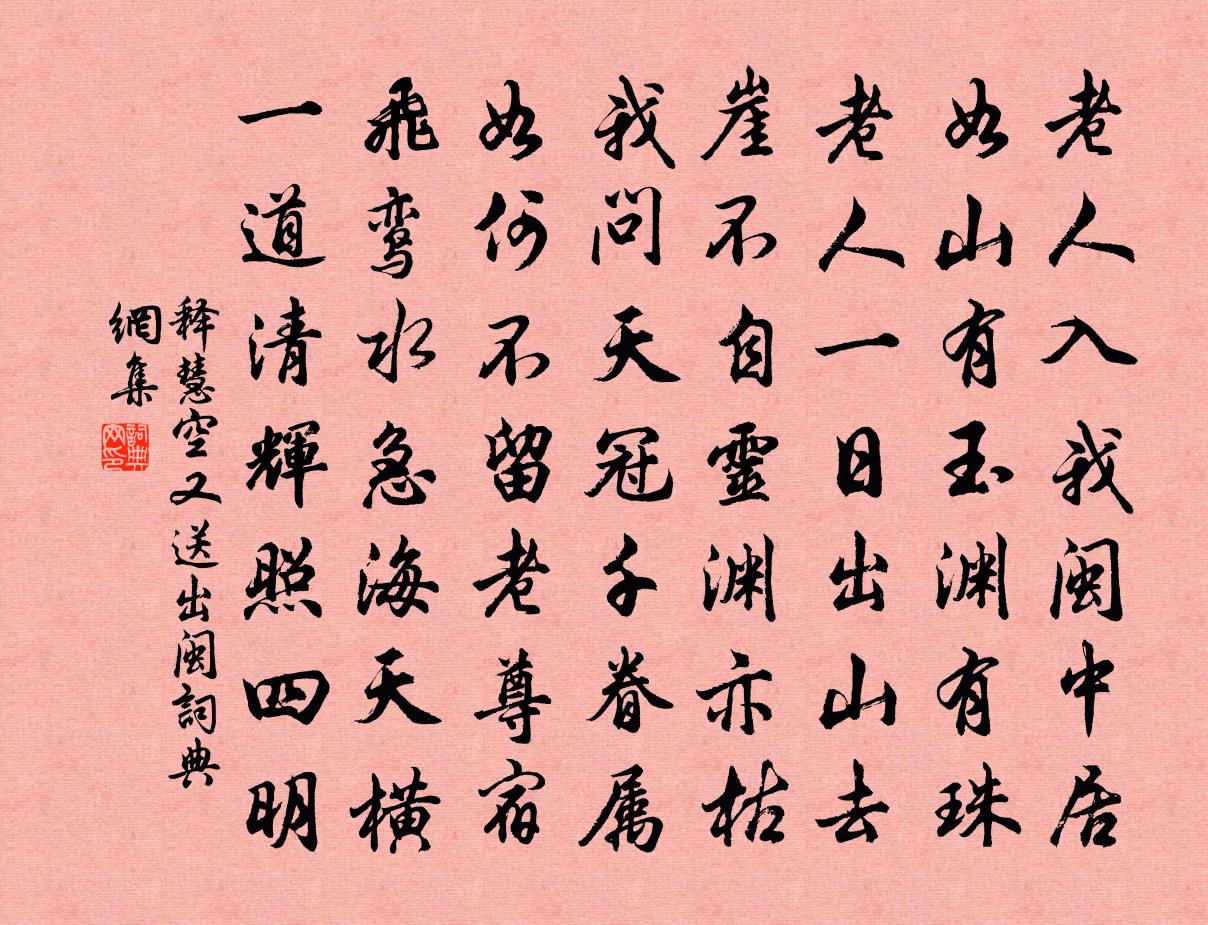 老人入我闽中居
如山有玉渊有珠
老人一日出山去
崖不自靈渊亦枯
我問天冠千眷属
如何不留老尊宿
飛鸾水急海天横
一道清輝照四明
释慧空又送出闽詞典
網集
詞典网印